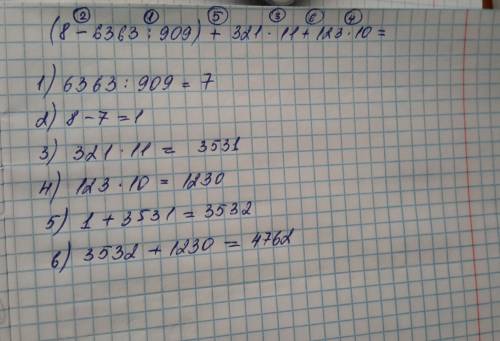 ② ① ⑤ ③ ⑥ ④
(8 - 6363 : 909) + 321 · 11 + 123 · 10 =
1) 6363 : 909 = 7
2) 8 - 7 = 1
3) 321 · 11 = 3531
4) 123 · 10 = 1230
5) 1 + 3531 = 3532
6) 3532 + 1230 = 4762